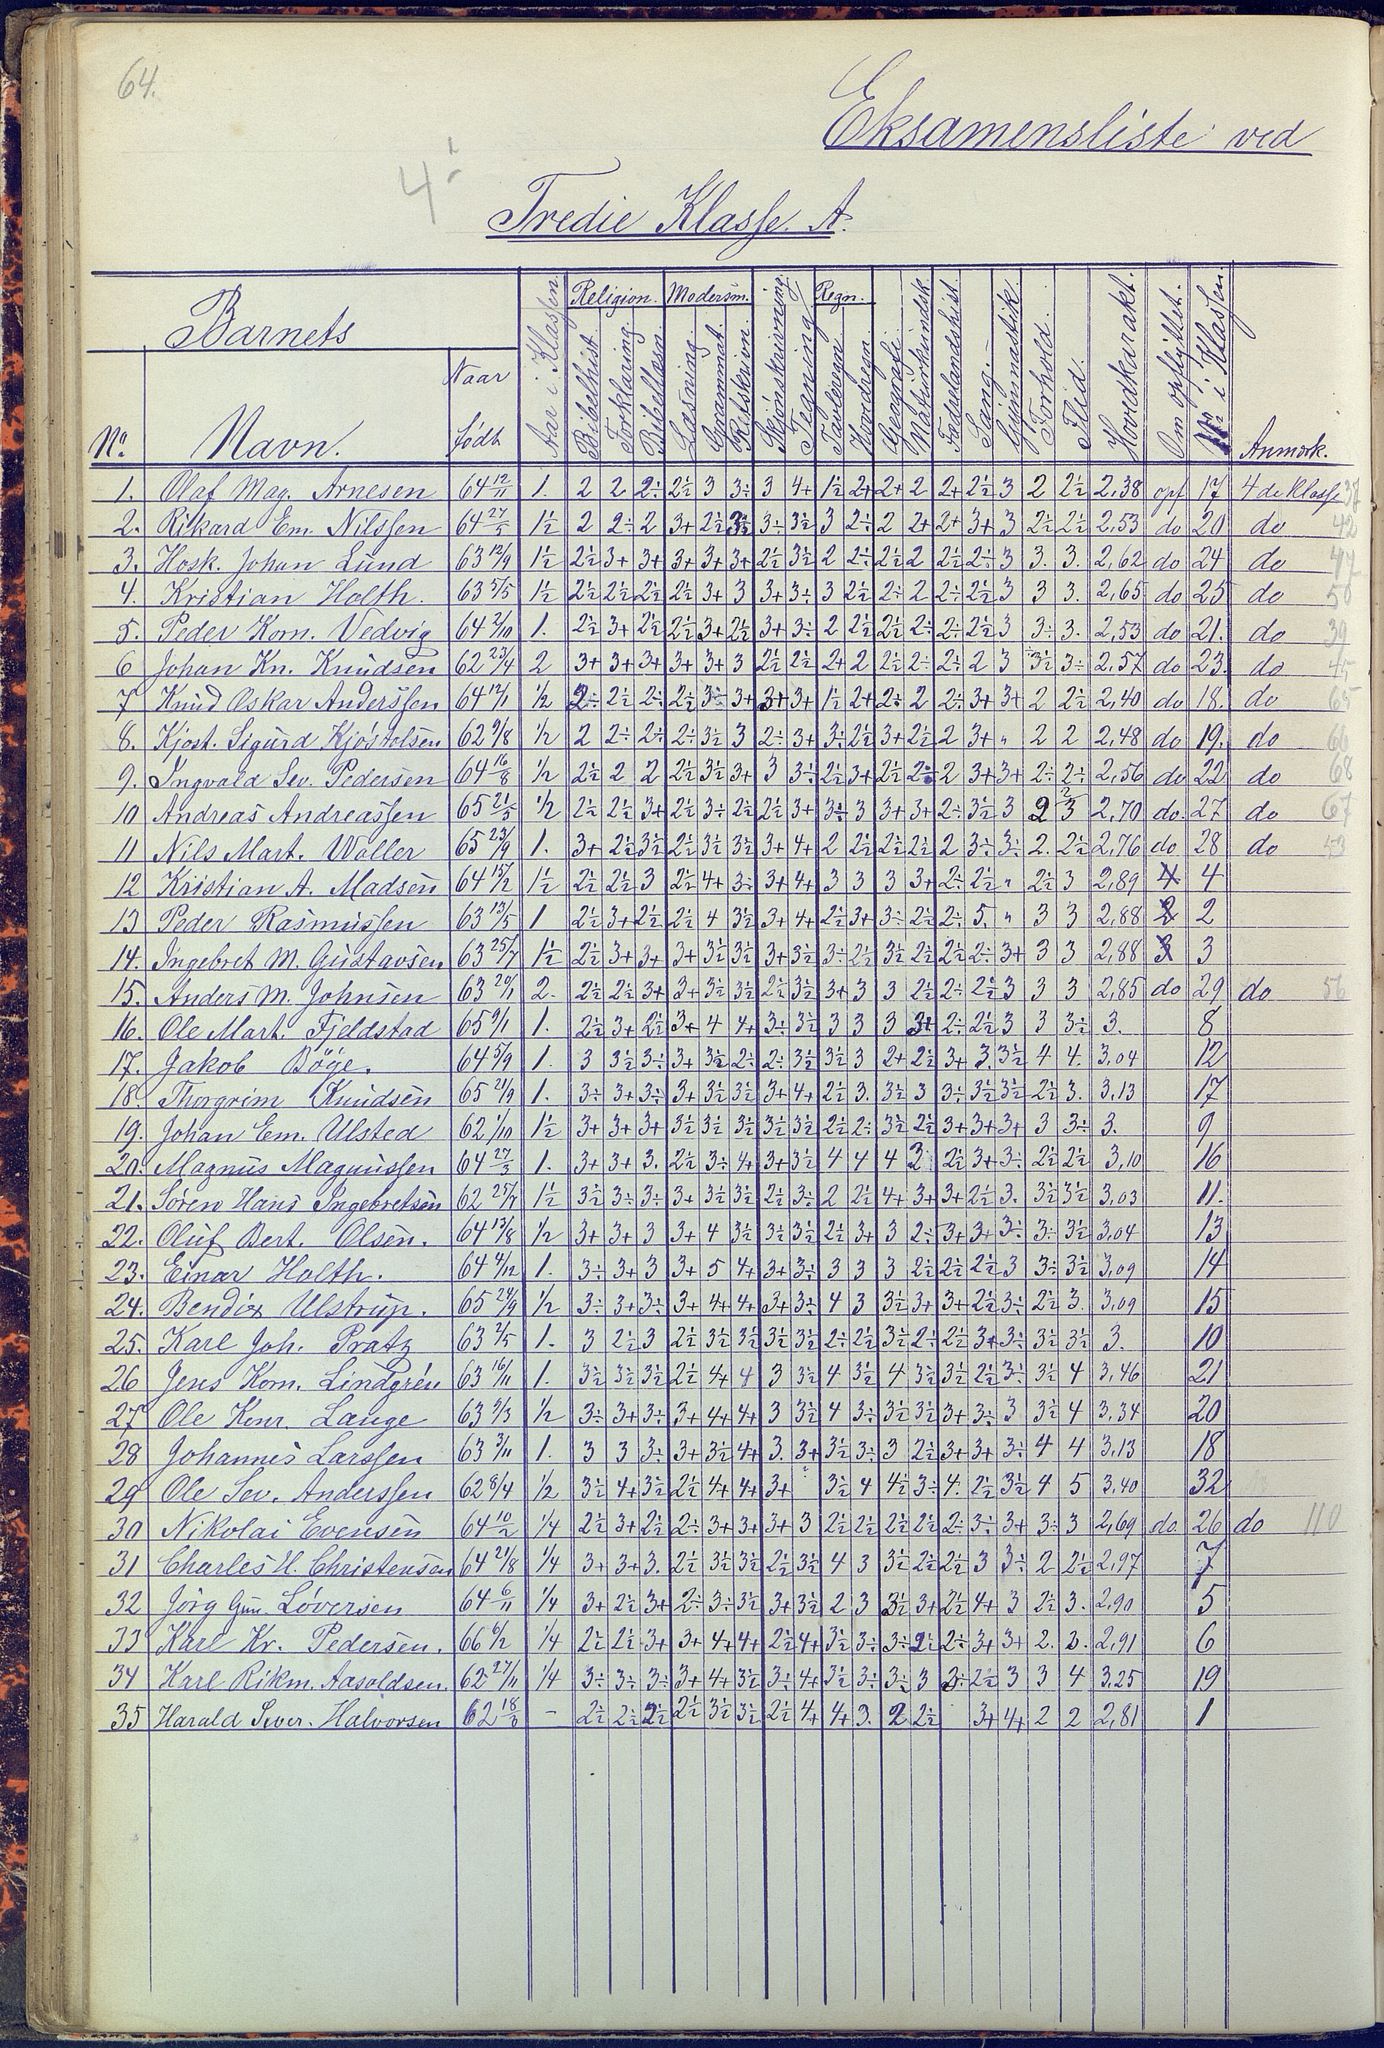 64.
Eksamensliste ved
4
Tredie Klasse. A.
Barnets
No. Navn. Naar født Aar i Klassen. Religion. Bibelhist. Forklaring. Bibellæsn. Modersm. Læsning Grammat. Retskrivn. Skjønskrivning Tegning Regn. Tavleregn Hovedregn. Geografi Naturkundsk. Fædrelandshist. Sang. Gymnastik. Forhold. Flid. Hovedkarakt. Om opflyttet. No i Klassen. Anmærk.
1. Olaf Mag. Arnesen 64 12/11 1. 2 2 2÷ 2½ 3 3÷ 3 4+ 1½ 2+ 2+ 2 2+ 2½ 3 2 2½ 2,38 opf 17 4de Klasse 37
2. Rikard Em. Nilssen 64 27/5 1½ 2 2÷ 2 3+ 2½ 3½ 3÷ 3½ 3 2÷ 2 2+ 2+ 3+ 3 2½ 2½ 2,53 do 20 do 42
3. Hosk. Johan Lund 63 12/9 1½ 2½ 3+ 3+ 3+ 3+ 3+ 2½ 3½ 2 2÷ 2½ 2 2½ 2÷ 3 3. 3. 2,62 do 24 do 47
4. Kristian Holth. 63 5/5 1½ 2½ 2½ 2½ 2½ 3+ 3 3+ 3÷ 3 2½ 2÷ 2 2÷ 2½ 3 3 3. 2,65 do 25 do 50
5. Peder Korn. Vedvig 64 2/10 1. 2½ 3+ 2½ 2½ 3+ 2½ 3+ 3÷ 2 2½ 2½ 2÷ 2÷ 2½ 3 3÷ 3. 2,53 do 21. do 39
6 Johan Kn. Knudsen 62 23/4 2 3+ 3+ 3+ 3+ 3+ 3 2½ 2½ 2+ 2 2½ 2÷ 2÷ 2 3 3½ 3÷ 2,57 do 23. do 45
7 Knud Oskar Anderssen 64 12/1 ½ 2÷ 2½ 2÷ 2½ 3÷ 3+ 3+ 3+ 1½ 2+ 2÷ 2 2÷ 3+ 3+ 2 2½ 2,40 do 18. do 65
8. Kjøst. Sigurd Kjøstolsen 62 9/8 ½ 2 2÷ 2÷ 2÷ 3½ 3 2÷ 3+ 3÷ 2½ 3+ 2½ 2 3+ " 2 2 2,48 do 19. do 66
9. Ingvald Sev. Pedersen 64 16/8 ½ 2½ 2 2 2½ 3½ 3+ 3 3÷ 2½ 3+ 2½ 2÷ 2 3+ 3+ 2÷ 2÷ 2,56 do 22 do 68
10 Andreas Andreassen 65 21/5 ½ 2½ 2½ 3+ 2½ 3÷ 2½ 2½ 3+ 3÷ 3 3+ 3+ 2÷ 3½ 3 2 3 2,70 do. 27 do 67
11 Nils Mart. Woller 65 23/9 1. 3+ 2½ 3½ 2½ 3½ 3½ 3+ 4+ 2 2½ 2½ 2½ 2 3÷ 3÷ 2. 2½ 2,76 do 28 do 53
12 Kristian A. Madsen 64 15/2 1½ 2½ 2½ 3 2½ 4+ 3÷ 3+ 4+ 3 3 3 3+ 2÷ 2½ " 2½ 3 2,89 4 4
13 Peder Rasmussen 63 13/5 1 2½ 3+ 2½ 2½ 4 3½ 3+ 4+ 2½ 3+ 3÷ 2½ 2÷ 5. " 3 3 2,88 2 2
14. Ingebret M. Gustavsen 63 25/7 1½ 2½ 3+ 3+ 3+ 3½ 3½ 3+ 3½ 3÷ 2½ 3½ 2½ 2½ 2÷ 3+ 3 3 2,88 3 3
15. Anders M. Johnsen 63 20/1 2. 2½ 2½ 3+ 3+ 3½ 3½ 2½ 3½ 3+ 3 3 2½ 2÷ 2½ 3 3 3 2,85 do 29 do 56
16. Ole Mart. Fjeldstad 65 9/1 1. 2½ 3+ 2½ 3+ 4 4+ 3÷ 3½ 3 3 3 3+ 2÷ 2½ 3 3 3½ 3. 8
17. Jakob Bøge. 64 5/9 1. 3 3½ 3÷ 3+ 3½ 2÷ 2÷ 3½ 3½ 3 2+ 2½ 3+ 3. 3½ 4 4. 3,04 12
18. Thorgrim Knudsen 65 21/9 1. 3÷ 3+ 3÷ 3+ 3½ 3½ 3+ 4+ 2½ 3. 3½ 3 3÷ 3½ 3½ 2½ 3. 3,13 17
19. Johan Em. Ulsted 62 1/10 1½ 3+ 3+ 3+ 3½ 3½ 3½ 3½ 3½ 2½ 2÷ 3½ 2½ 3+ 3+ 3+ 3 3÷ 3. 9
20. Magnus Magnussen 64 27/3 1. 3+ 3+ 3. 2½ 3÷ 4+ 3+ 3½ 4 4 4 2 2½ 3+ 3÷ 2½ 2½ 3,10 16
21. Søren Hans Ingebretsen 62 25/7 1½ 3½ 3÷ 3÷ 3+ 3½ 3½ 2½ 3÷ 2 2½ 4+ 3+ 3+ 2½ 3. 3½ 3½ 3,03 11.
22. Oluf Bert. Olsen. 64 13/8 ½ 3+ 3+ 3 3+ 4 3½ 3½ 3½ 2½ 3+ 3 2÷ 3+ 3+ 3÷ 3÷ 3½ 3,04 13
23. Einar Holth. 64 4/12 1. 3÷ 3+ 3 3+ 5 4+ 3+ 3÷ 3 3 3 2½ 2½ 2½ 3 3÷ 3½ 3,09 14
24. Bendix Ulstrup. 65 24/9 ½ 3÷ 3+ 3÷ 3+ 4+ 4+ 3+ 3÷ 4 3 3½ 3+ 3+ 2½ 3÷ 2½ 3. 3,09 15
25. Karl Joh. Pratz 63 2/5 1. 3 2½ 3 2½ 3½ 3½ 3½ 3½ 2÷ 2½ 3½ 2÷ 2½ 3+ 3÷ 3½ 3½ 3. 10
26 Jens Korn. Lindgren 63 16/11 1. 3½ 3½ 3½ 2½ 4+ 4 3 3½ 4 3½ 4 3½ 3½ 2½ 3÷ 3½ 4 3,46 21
27 Ole Henr. Lange 63 9/3 ½ 3÷ 3+ 3÷ 3+ 4+ 4+ 3 3½ 4 3÷ 3½ 3½ 3+ 3÷ 3 3½ 4 3,34 20
28 Johannes Larssen 63 3/11 1. 3 3 3÷ 3+ 3½ 4+ 3. 3+ 3½ 3÷ 3 2½ 3+ 3+ 3÷ 4 4 3,13 18
29 Ole Sev. Anderssen 62 8/4 ½ 3½ 4+ 3½ 2½ 4+ 4+ 3+ " 3½ 4 4½ 3÷ 4. 2½ 3½ 4 5 3,40 32
30 Nikolai Evensen 64 10/2 ¼ 2½ 3+ 2½ 2÷ 3+ 3+ 3+ 3 2½ 2½ 2½ 2½ 2÷ 3÷ 3+ 3÷ 3 2,69 do. 26 do 110
31 Charles H. Christensen 64 21/8 ¼ 3+ 3+ 3. 2½ 3½ 3½ 2½ 3½ 4 3 3½ 2½ 2½ 3 3÷ 2 2½ 2,97 7
32 Jørg Gun. Løversen 64 6/11 ¼ 3+ 2½ 3+ 2÷ 3÷ 3½ 3+ 3½ 2 3 3½ 3+ 2½ 4+ 3 2½ 3. 2,90 5
33 Karl Kr. Pedersen. 66 6/2 ¼ 2½ 2½ 3+ 3+ 4+ 4+ 2½ 4+ 3½ 3÷ 3÷ 2½ 2÷ 3+ 3+ 2. 2. 2,91 6
34 Karl Rikm. Aasoldsen. 62 27/11 ¼ 3÷ 3÷ 3÷ 3+ 4+ 3½ 3÷ 4+ 3½ 3÷ 3÷ 3 3÷ 2½ 3 3 4 3,25 19
35 Harald Sever. Halvorsen 62 18/8 – 2½ 2½ 2½ 2½ 3½ 3½ 2½ 4+ 4+ 3. 2 2½ 3+ 4+ 2 2 2,81 1